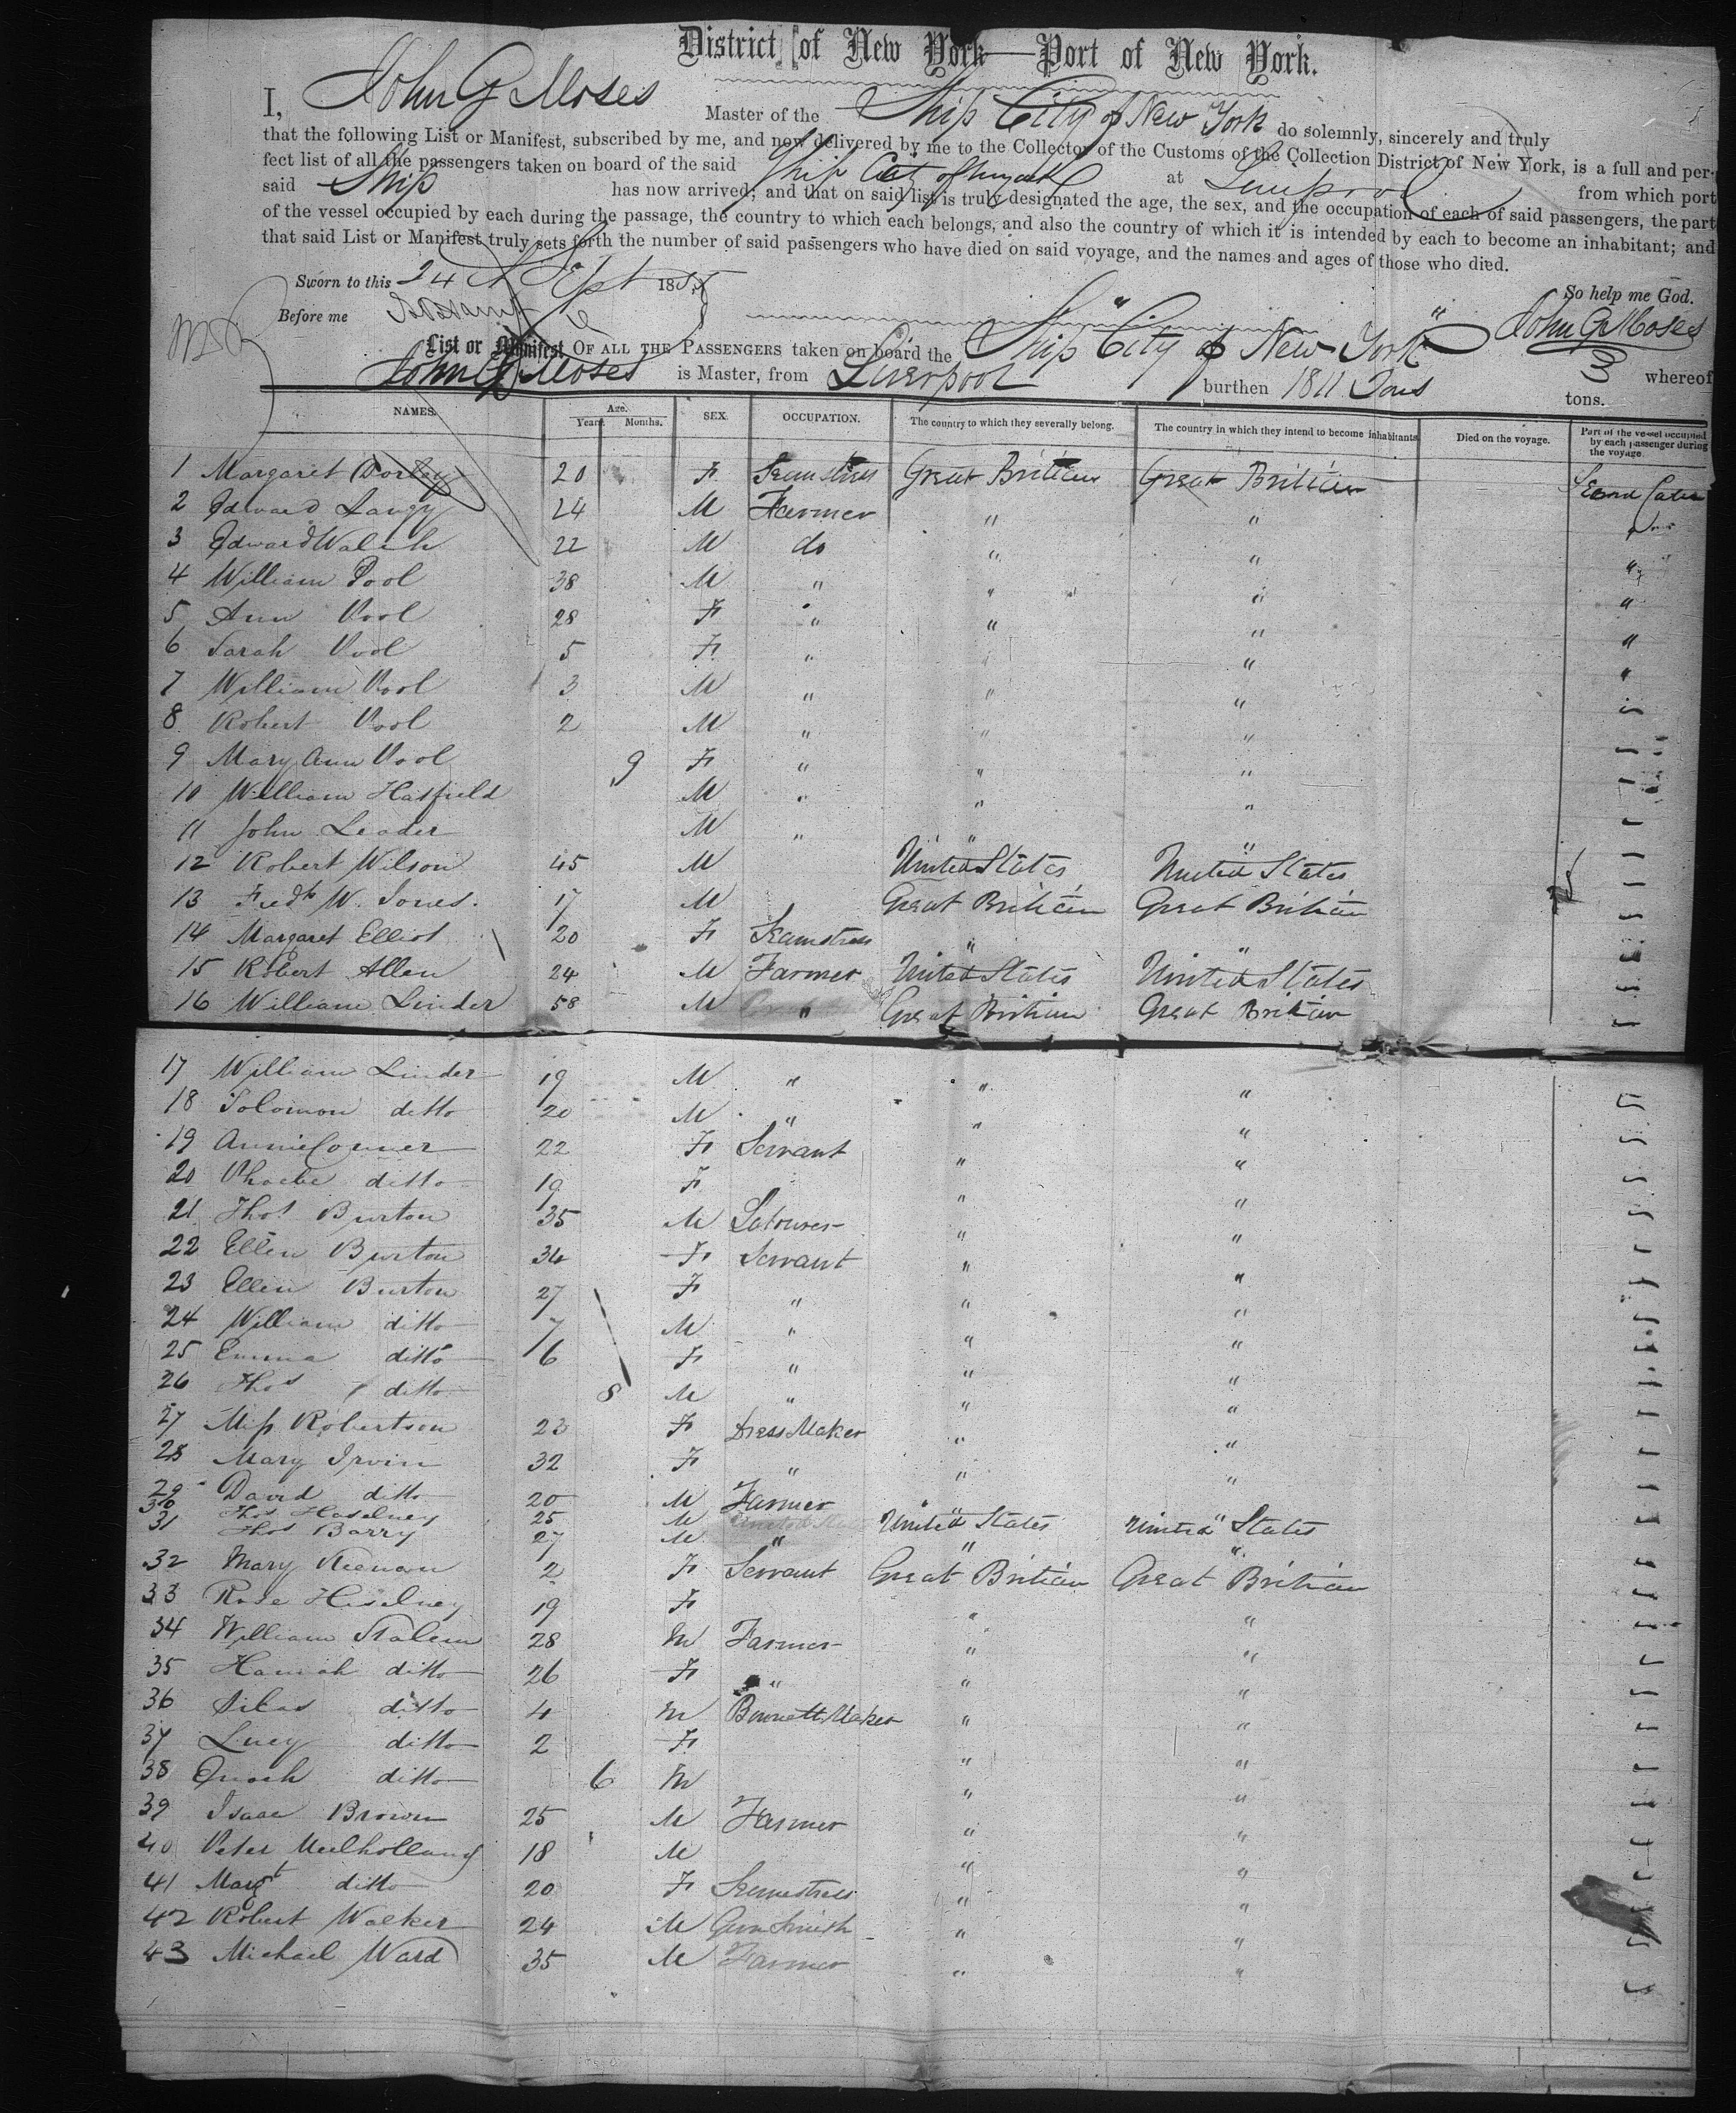 District of New York—Port of New York.
I, John G Moses Master of the Ship City of New York do solemnly, sincerely and truly
that the following List or Manifest, subscribed by me, and now delivered by me to the Collector of the Customs of the Collection District of New York, is a full and per-
fect list of all the passengers taken on board of the said Ship City of at Liverpool from which port
said Ship has now arrived; and that on said list is truly designated the age, the sex, and the occupation of each of said passengers, the part
of the vessel occupied by each during the passage, the country to which each belongs, and also the country of which it is intended by each to become an inhabitant; and
that said List or Manifest truly sets forth the number of said passengers who have died on said voyage, and the names and ages of those who died.
So help me God.
Sworn to this 24 Sept 185
Before me
John G Moses
List or Manifest OF ALL THE PASSENGERS taken on board the Ship "City of New York" whereof
John G Moses is Master, from Liverpool burthen 1811 Tons tons.
3
NAMES. Age. Years. Months. SEX. OCCUPATION. The country to which they severally belong. The country in which they intend to become inhabitants Died on the voyage. Part of the vessel occupied by each passenger during the voyage
1 Margaret 20 F Seamstress Great Britian Great Britian Second Cabin
2 Edward 24 M Farmer " "
3 Edward Walsh 22 M do " " "
4 William Pool 38 M " " " "
5 Ann Pool 28 F " " " "
6 Sarah Pool 5 F " " " "
7 William Pool 3 M " " "
8 Robert Pool 2 M " " "
9 Mary Ann Pool 9 F " " "
10 William Hatfield M " " "
11 John Leader M " " "
12 Robert Wilson 45 M United States United States
13 Fredk W. Jones. 17 M Great Britian Great Britian
14 Margaret Elliot 20 F Seamstress " "
15 Robert Allen 24 M Farmer United States United States
16 William Linder 58 M " Great Britian Great Britian
17 William Linder 19 M " " "
18 Solomon ditto 20 M " " "
19 Annie Conner 22 F Servant " "
20 Phoebe ditto 19 F " "
21 Thos Burton 35 M Labourer " "
22 Ellen Burton 34 F Servant " "
23 Ellen Burton 27 F " " "
24 William ditto 7 M " " "
25 Emma ditto 6 F " " "
26 Thos ditto 8 M " " "
27 Miss Robertson 23 F Dress Maker " "
28 Mary Irvin 32 F " " "
29 David ditto 20 M Farmer
30 Thos Haselney 25 M United States United States
31 Thos Barry 27 M " " "
32 Mary Keenan 2 F Servant Great Britian Great Britian
33 Rose Haselney 19 F " "
34 William Stalem 28 M Farmer " "
35 Hannah ditto 26 F " " "
36 Silas ditto 4 M Bonnett Maker " "
37 Lucy ditto 2 F " "
38 Enoch ditto 6 M " "
39 Isaac Brown 25 M Farmer " "
40 Peter Mulholland 18 M " "
41 Margt ditto 20 F Seamstress " "
42 Robert Walker 24 M Gun Smith " "
43 Michael Ward 35 M Farmer " "